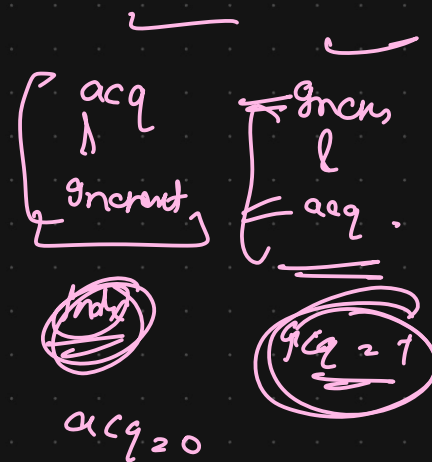 acq
Increment
Incr
&
acq.
acq = 1
acq = 0